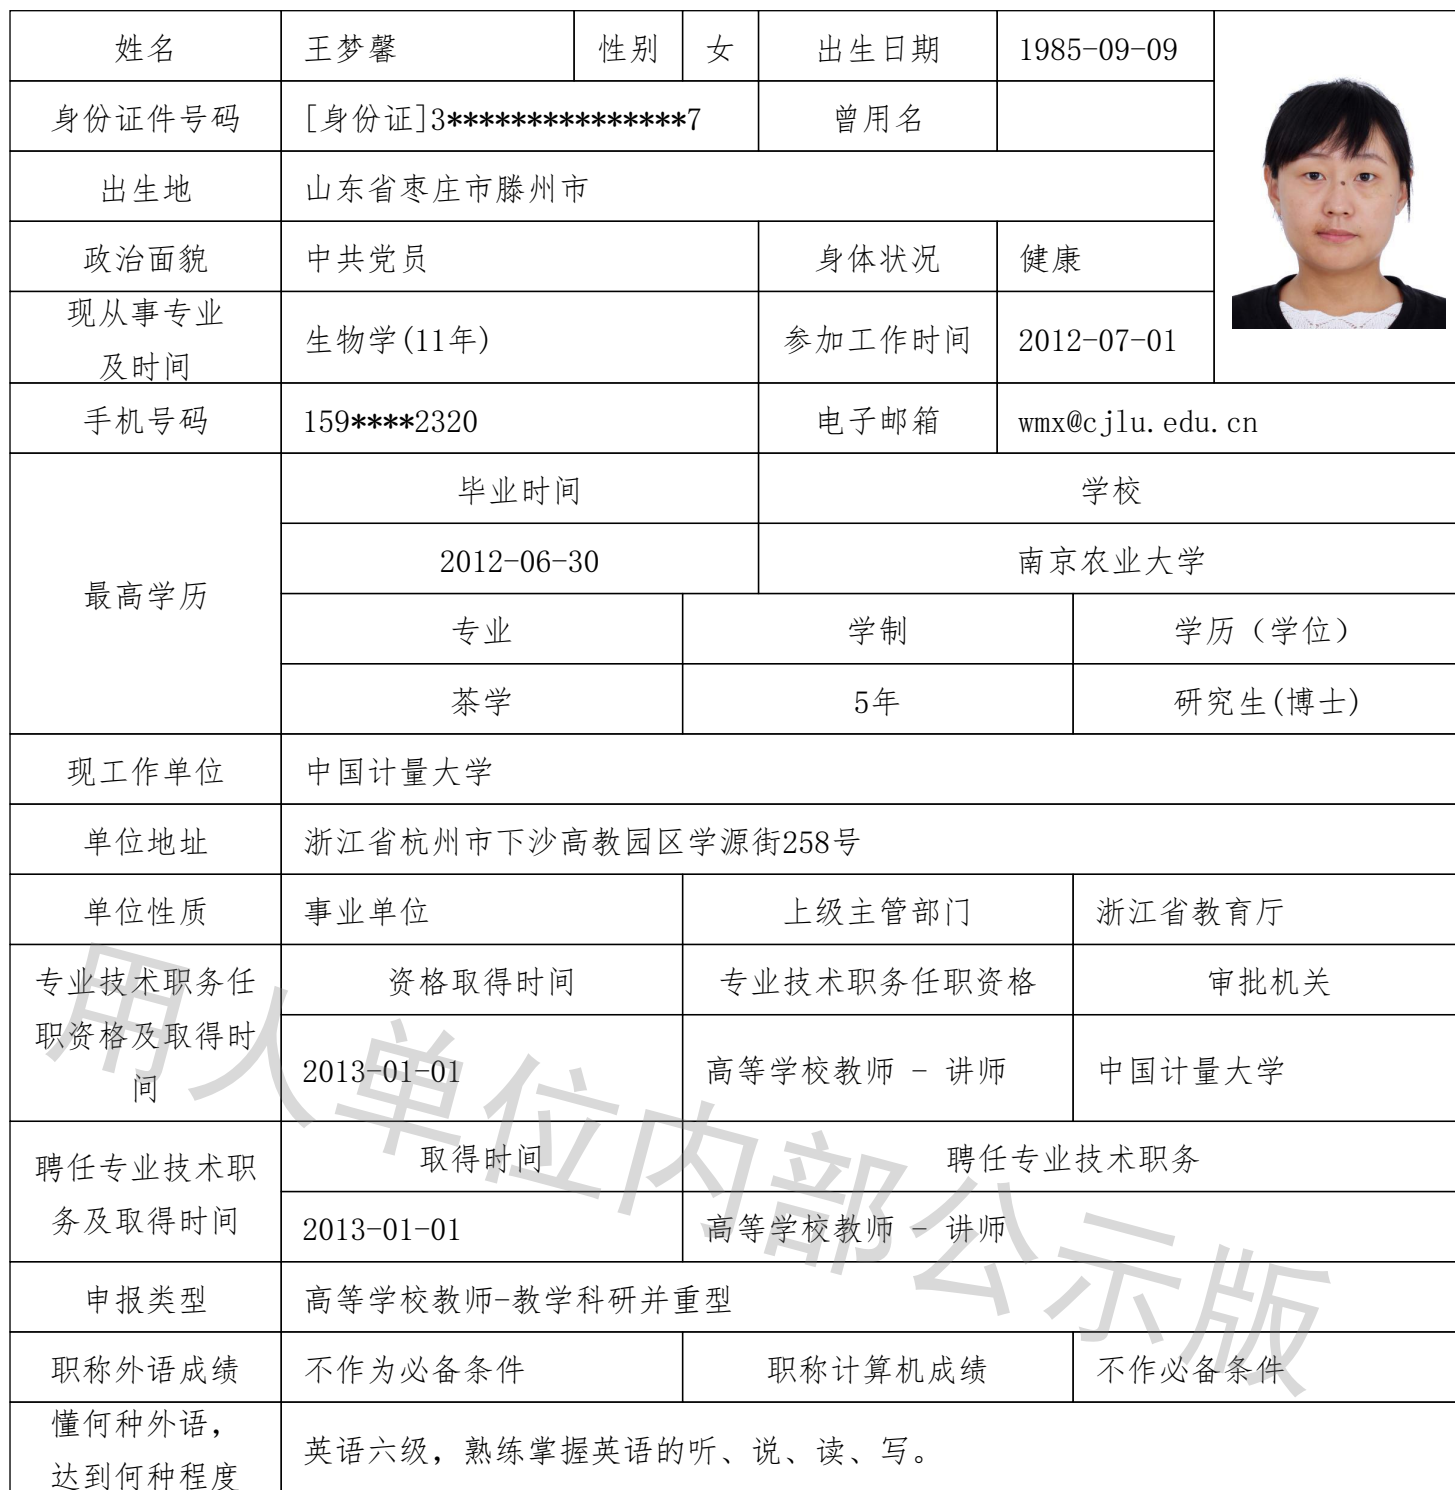 姓名 王梦馨 性别 女 出生日期 1985-09-09
身份证件号码 [身份证]3***************7 曾用名
出生地 山东省枣庄市滕州市
政治面貌 中共党员 身体状况 健康
现从事专业
及时间
生物学(11年) 参加工作时间 2012-07-01
手机号码 159****2320 电子邮箱 wmx@cjlu.edu.cn
最高学历
毕业时间 学校
2012-06-30 南京农业大学
专业 学制 学历（学位）
茶学 5年 研究生(博士)
现工作单位 中国计量大学
单位地址 浙江省杭州市下沙高教园区学源街258号
单位性质 事业单位 上级主管部门 浙江省教育厅
专业技术职务任
职资格及取得时
间
资格取得时间 专业技术职务任职资格 审批机关
2013-01-01 高等学校教师 - 讲师 中国计量大学
聘任专业技术职
务及取得时间
取得时间 聘任专业技术职务
2013-01-01 高等学校教师 - 讲师
申报类型 高等学校教师-教学科研并重型
职称外语成绩 不作为必备条件 职称计算机成绩 不作必备条件
懂何种外语，
达到何种程度
英语六级，熟练掌握英语的听、说、读、写。
用人单位内部公示版